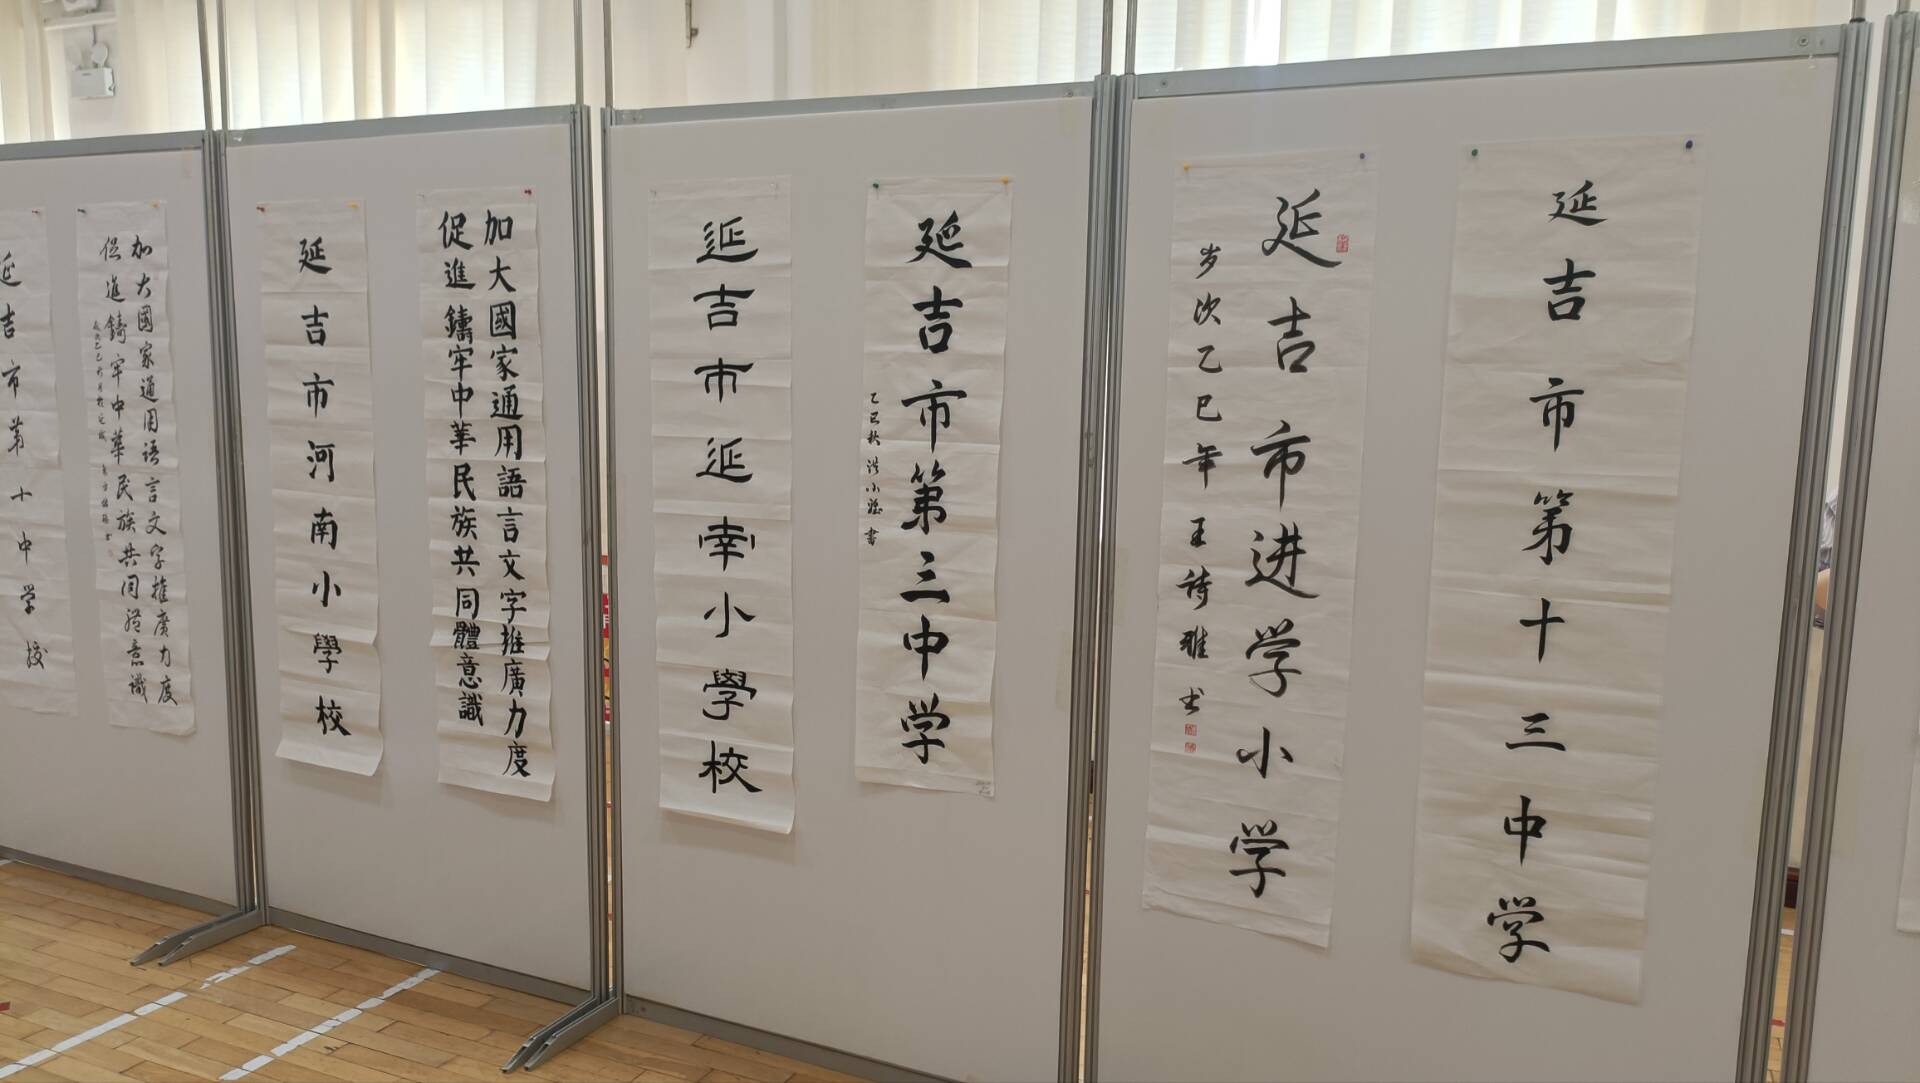 延吉市第十中学校
加大國家通用语言文字推廣力度
促進鑄牢中華民族共同體意識
延吉市河南小學校
加大國家通用語言文字推廣力度
促進鑄牢中華民族共同體意識
延吉市延南小學校
延吉市第三中学
乙巳秋
书
延吉市进学小学
岁次乙巳年王诗雅书
延吉市第十三中学